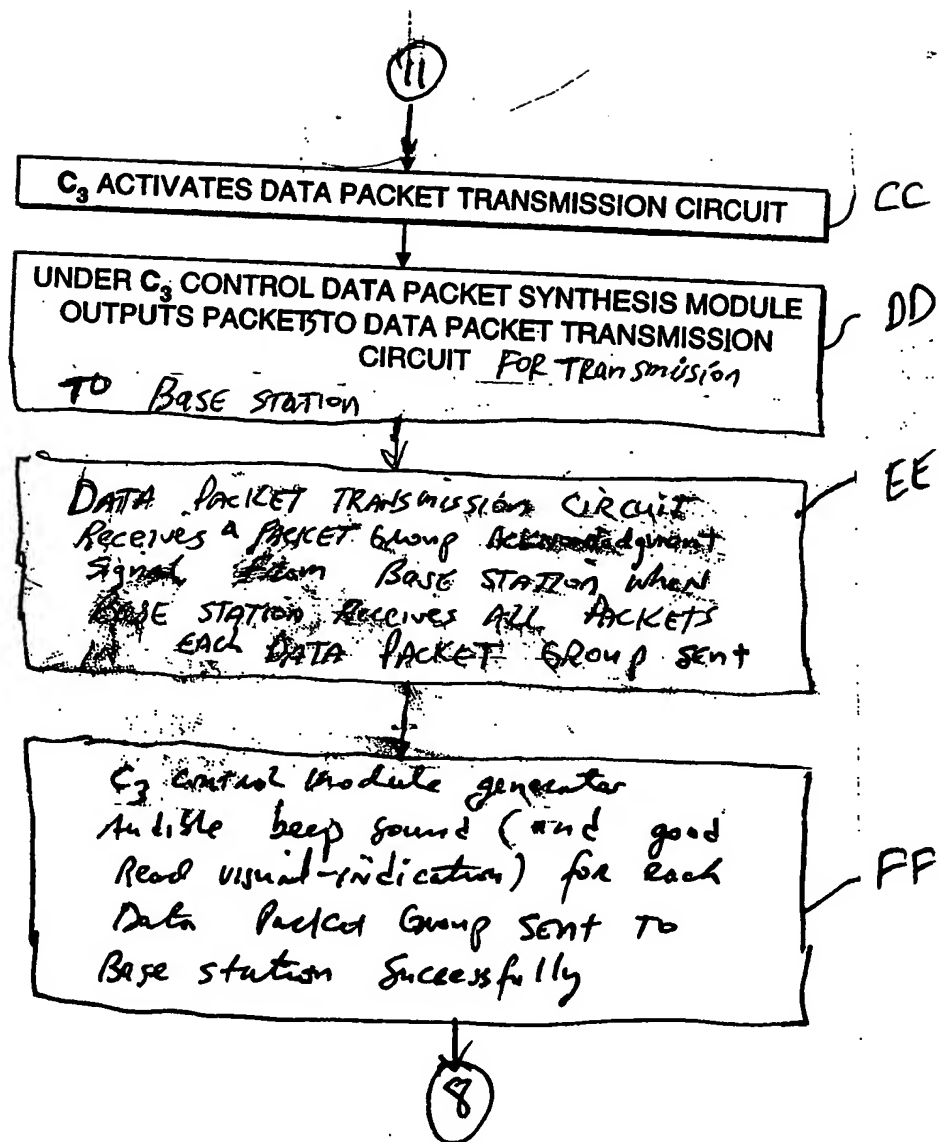 11
C3 ACTIVATES DATA PACKET TRANSMISSION CIRCUIT
CC
UNDER C3 CONTROL DATA PACKET SYNTHESIS MODULE
OUTPUTS PACKETS TO DATA PACKET TRANSMISSION
CIRCUIT FOR TRansmission
TO Base STATION
DD
DATA PACKET TRANSMISSION CIRCUIT
Receives a PACKET Group Acknowledgment
Signal From Base STATION when
BASE STATION Receives ALL PACKETS
EACH DATA PACKET GROUP sent
EE
C3 control module generator
Audible beep sound (and good
Read visual-indication) for each
Data Packet Group SENT TO
Base station Successfully
FF
8